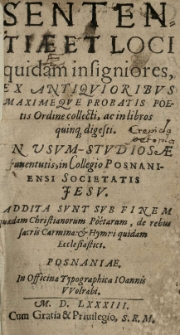 SENTEN-
TIÆ ET LOCI
quidam insigniores,
EX ANTIQVIORIBVS
MAXIMEQVE PROBATIS POE-
tis Ordine collecti, ac in libros
quinq; digesti.
N USVM STVDIOSÆ
Juuentutis, in Collegio POSNANI-
ENSI SOCIETATIS
JESV.
ADDITA SVNT SVB FINEM
quædam Christianorum Poëtarum, de rebus
sacris Carmina: & Hymni quidam
Ecclesiastici.
POSNANIAE.
In Officina Typographica IOannis
VVolrabi.
M. D. LXXXIII.
Cum Gratia & Priuilegio, S. R. M.